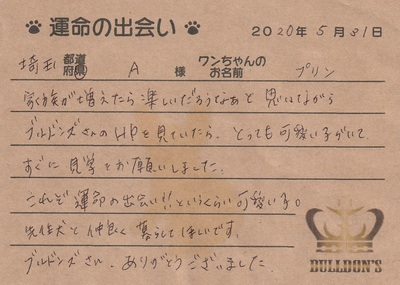 運命の出会い 2020年5月31日
埼玉 都道府県 A 様 ワンちゃんのお名前 プリン
家族が増えたら楽しいだろうなあと思いながら
ブルドンズさんのHPを見ていたら、とっても可愛い子がいて
すぐに見学をお願いしました。
これぞ運命の出会い!!というくらい可愛い子。
先住犬と仲良く暮らしてほしいです。
ブルドンズさん、ありがとうございました
BULLDON'S